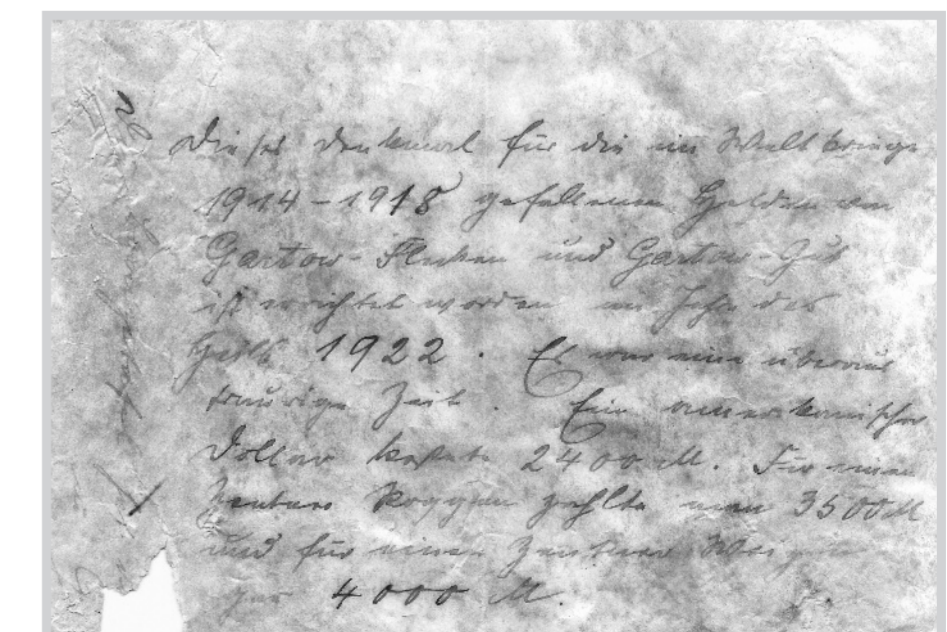 Dieses Denkmal für die im Weltkriege
1914-1918 gefallenen Helden von
Gartow-Flecken und Gartow-Gut
ist errichtet worden im Jahre des
1922. Es war eine überaus
traurige Zeit. Ein amerikanischer
Dollar kostete 2400 M. Für einen
Zentner Roggen zahlte man 3500 M
und für einen Zentner Weizen
gar 4000 M.